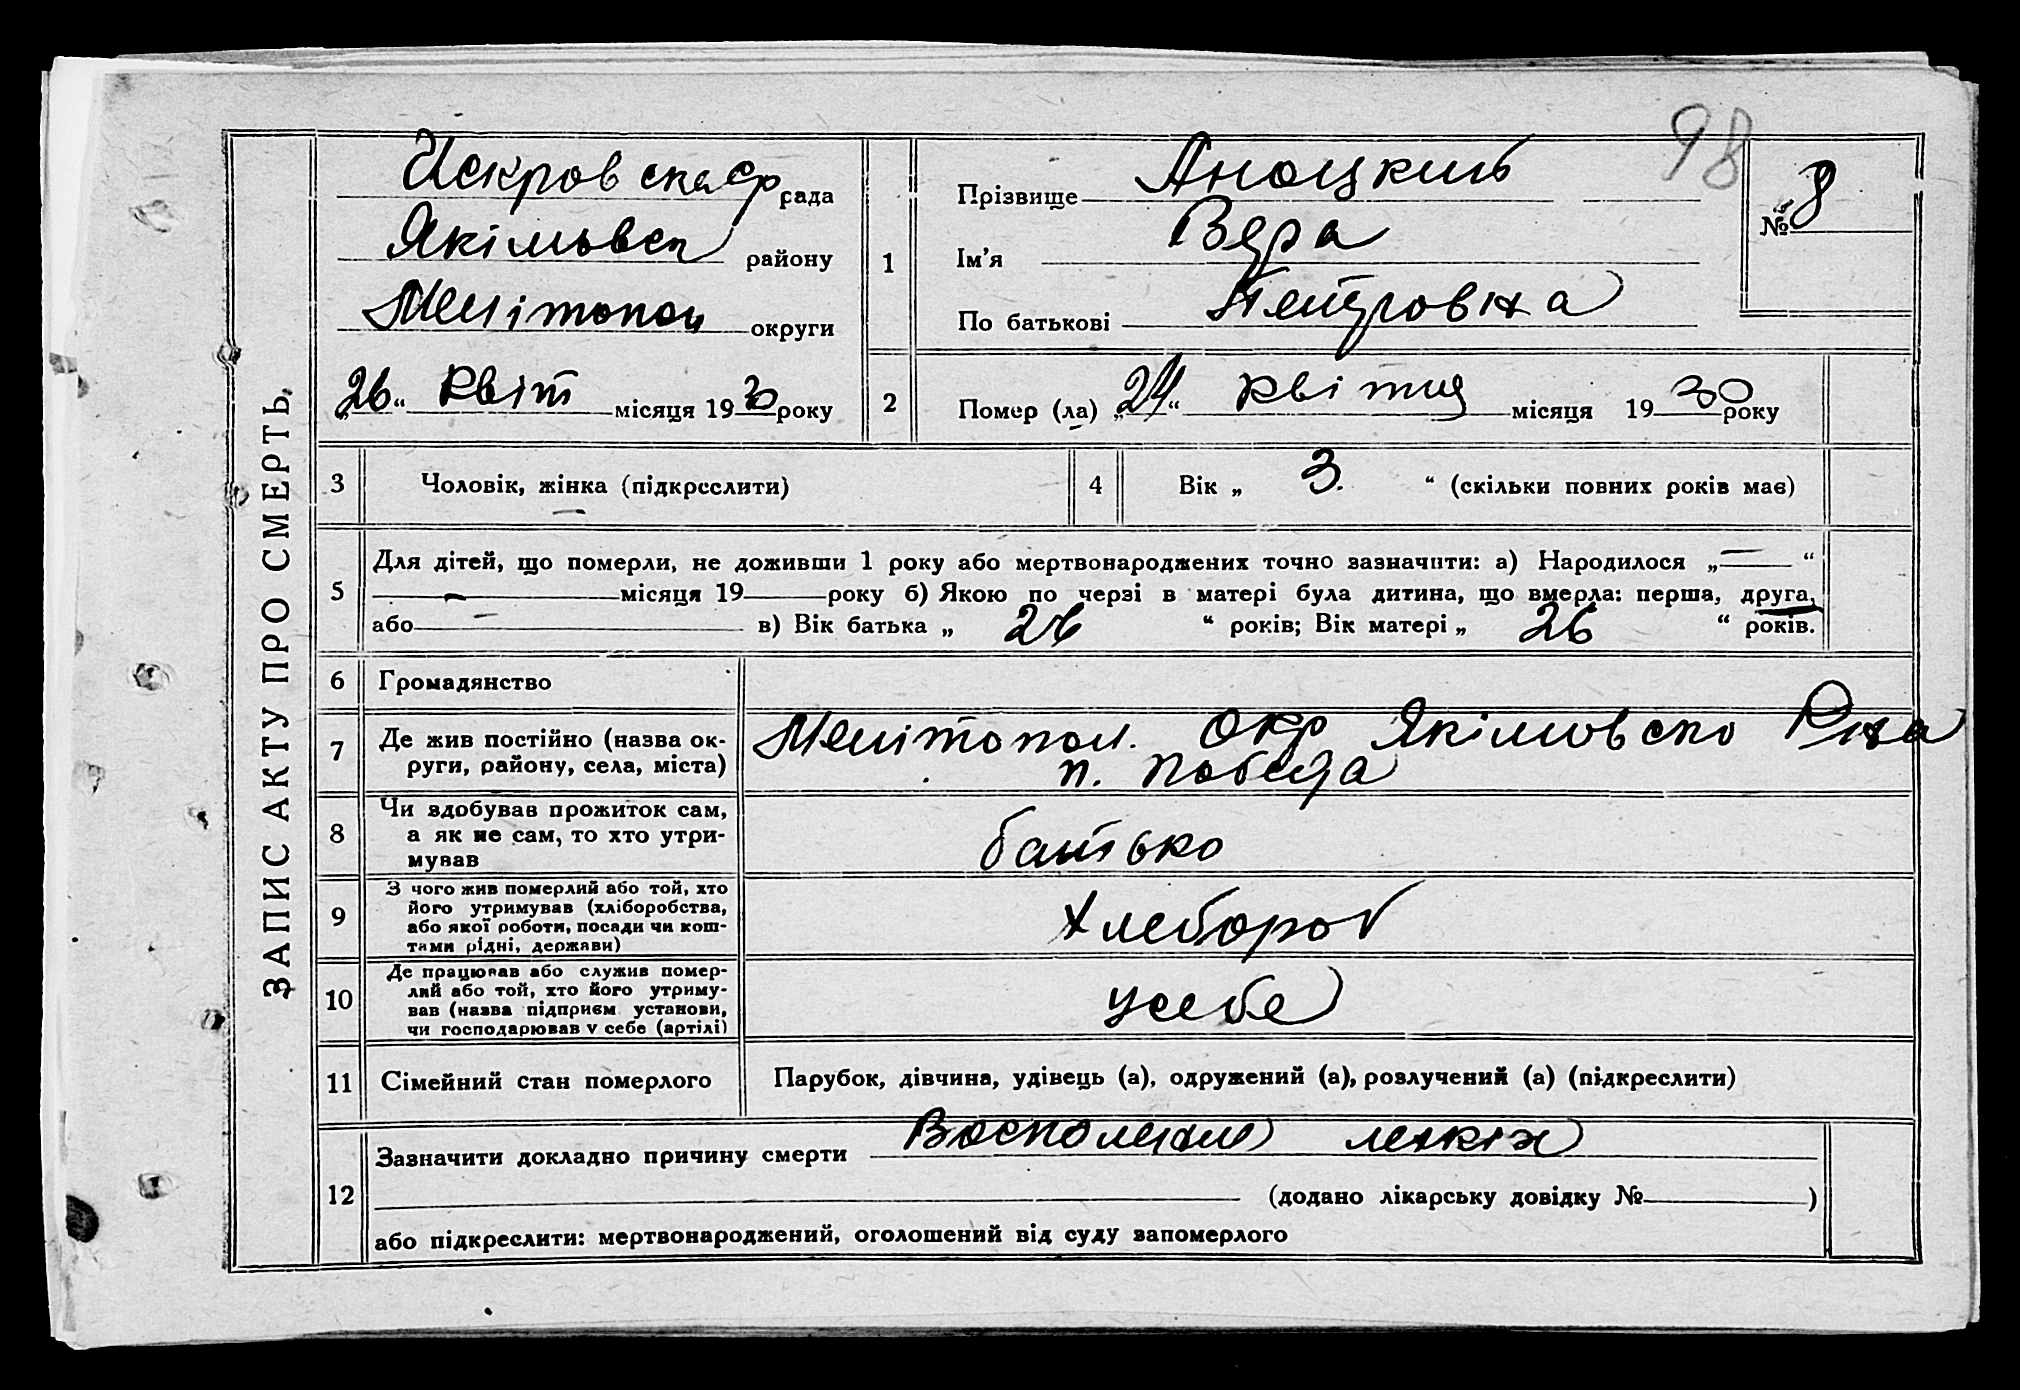 98
ЗАПИС АКТУ ПРО СМЕРТЬ.
Искровска рада
Якімовсп району
Мелітопол округи
„26“ квіт місяця 1930 року
1
Прізвище Аноцкий
Ім’я Вера
По батькові Петровна
№ 8
2 Помер (ла) „24“ квітня місяця 1930 року
3 Чоловік, жінка (підкреслити)
4 Вік „ 3. “ (скільки повних років має)
5 Для дітей, що померли, не доживши 1 року або мертвонароджених точно зазначити: а) Народилося „—“
— місяця 19 року б) Якою по черзі в матері була дитина, що вмерла: перша, друга,
або — в) Вік батька „ 26 “ років; Вік матері „ 26 “ років.
6 Громадянство
7 Де жив постійно (назва ок-
руги, району, села, міста)
Мелітопол. Окр Якімовско Рна
п. Победа
8 Чи здобував прожиток сам,
а як не сам, то хто утри-
мував
батько
9 З чого жив померлий або той, хто
його утримував (хліборобства,
або якої роботи, посади чи кош-
тами рідні, держави)
хлебороб
10 Де працював або служив помер-
лий або той, хто його утриму-
вав (назва підприєм установи,
чи господарював у себе (артілі)
усебе
11 Сімейний стан померлого
Парубок, дівчина, удівець (а), одружений (а), розлучений (а) (підкреслити)
12 Зазначити докладно причину смерти легкіх
(додано лікарську довідку № )
або підкреслити: мертвонароджений, оголошений від суду запомерлого